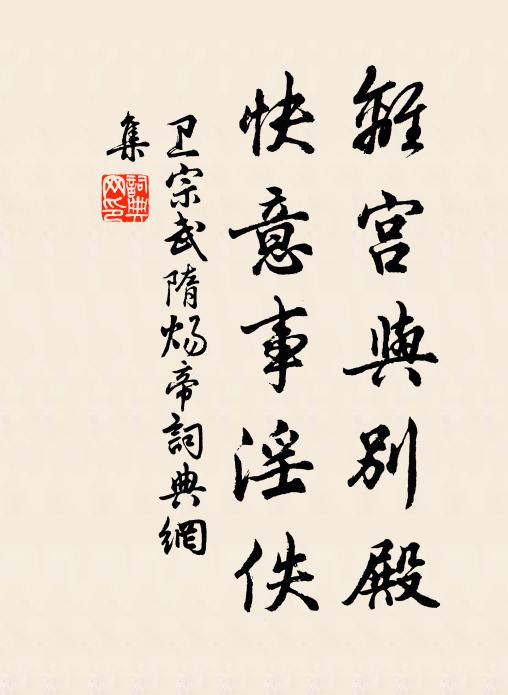 離宮與別殿
快意事淫佚
卫宗武隋煬帝詞典網
集
詞典網印